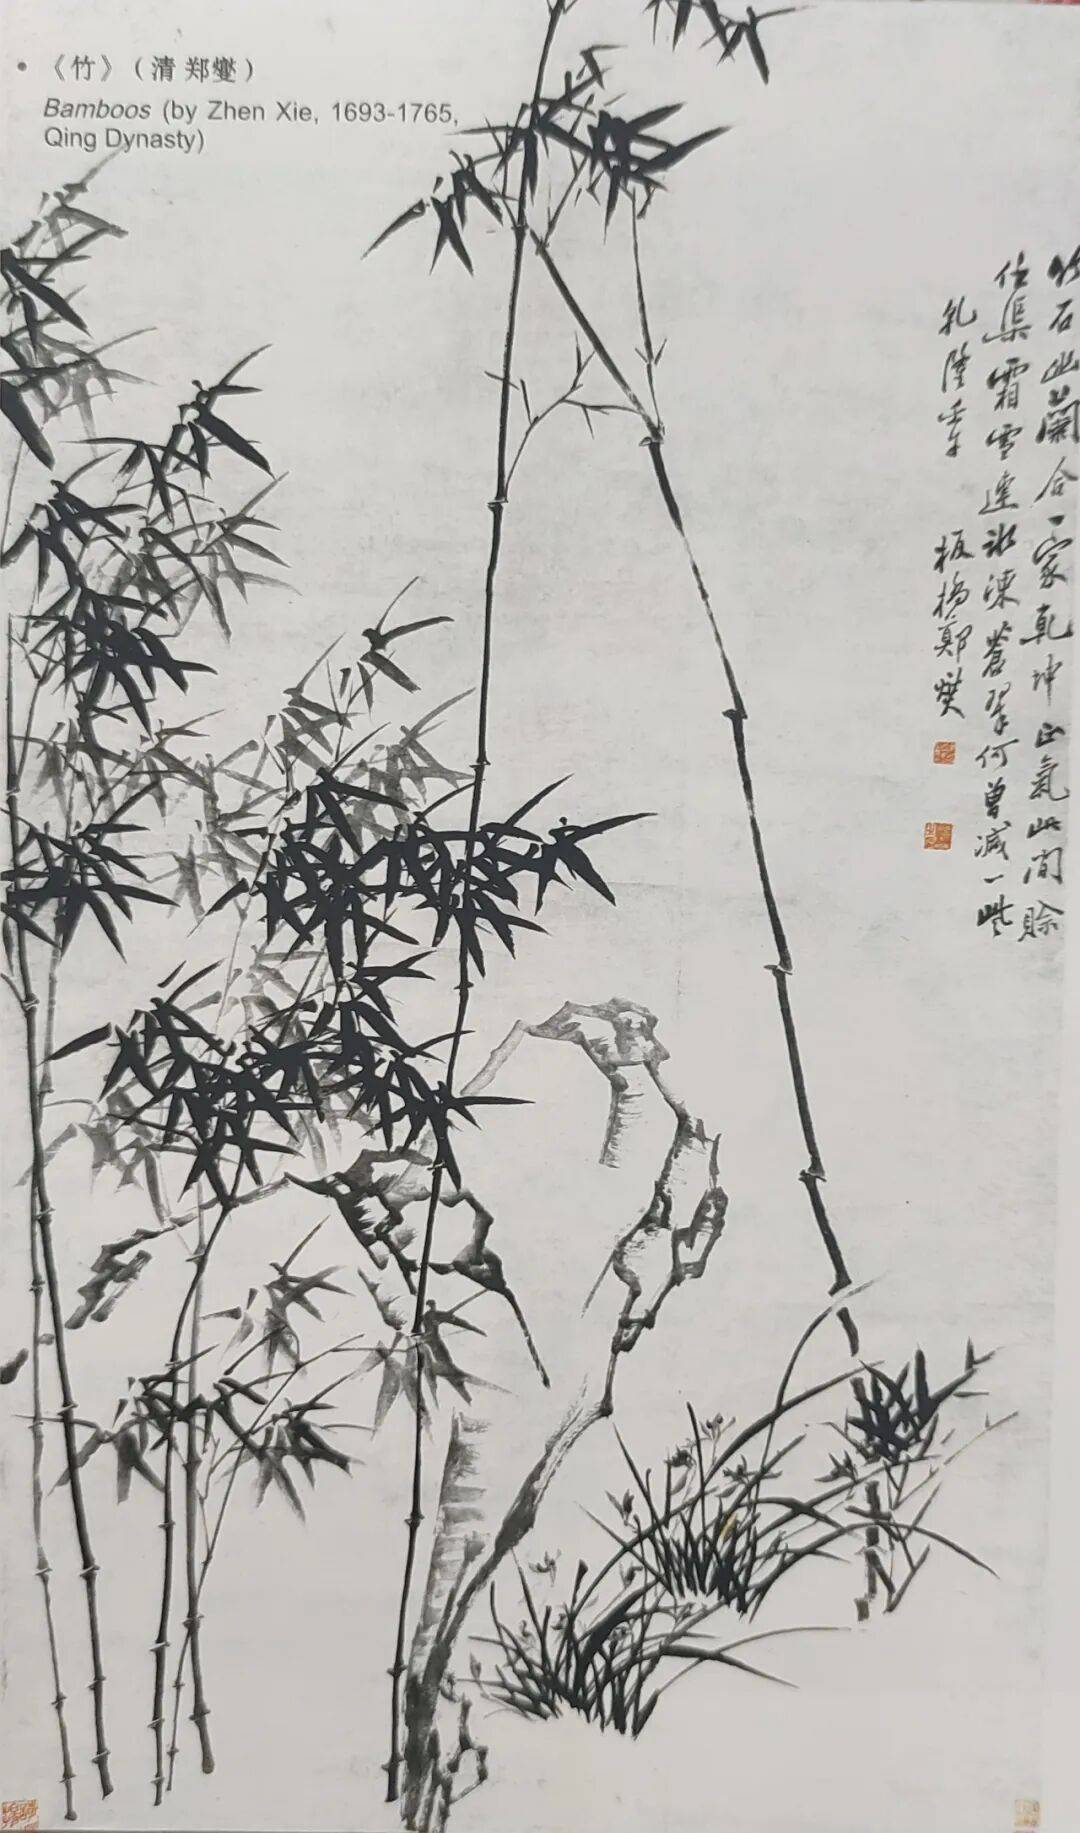 • 《竹》（清 郑燮）
Bamboos (by Zhen Xie, 1693-1765,
Qing Dynasty)
竹石幽蘭合一家乾坤正氣此間賒
任渠霜雪連冰凍蒼翠何曾減一些
乾隆壬午 板橋鄭燮